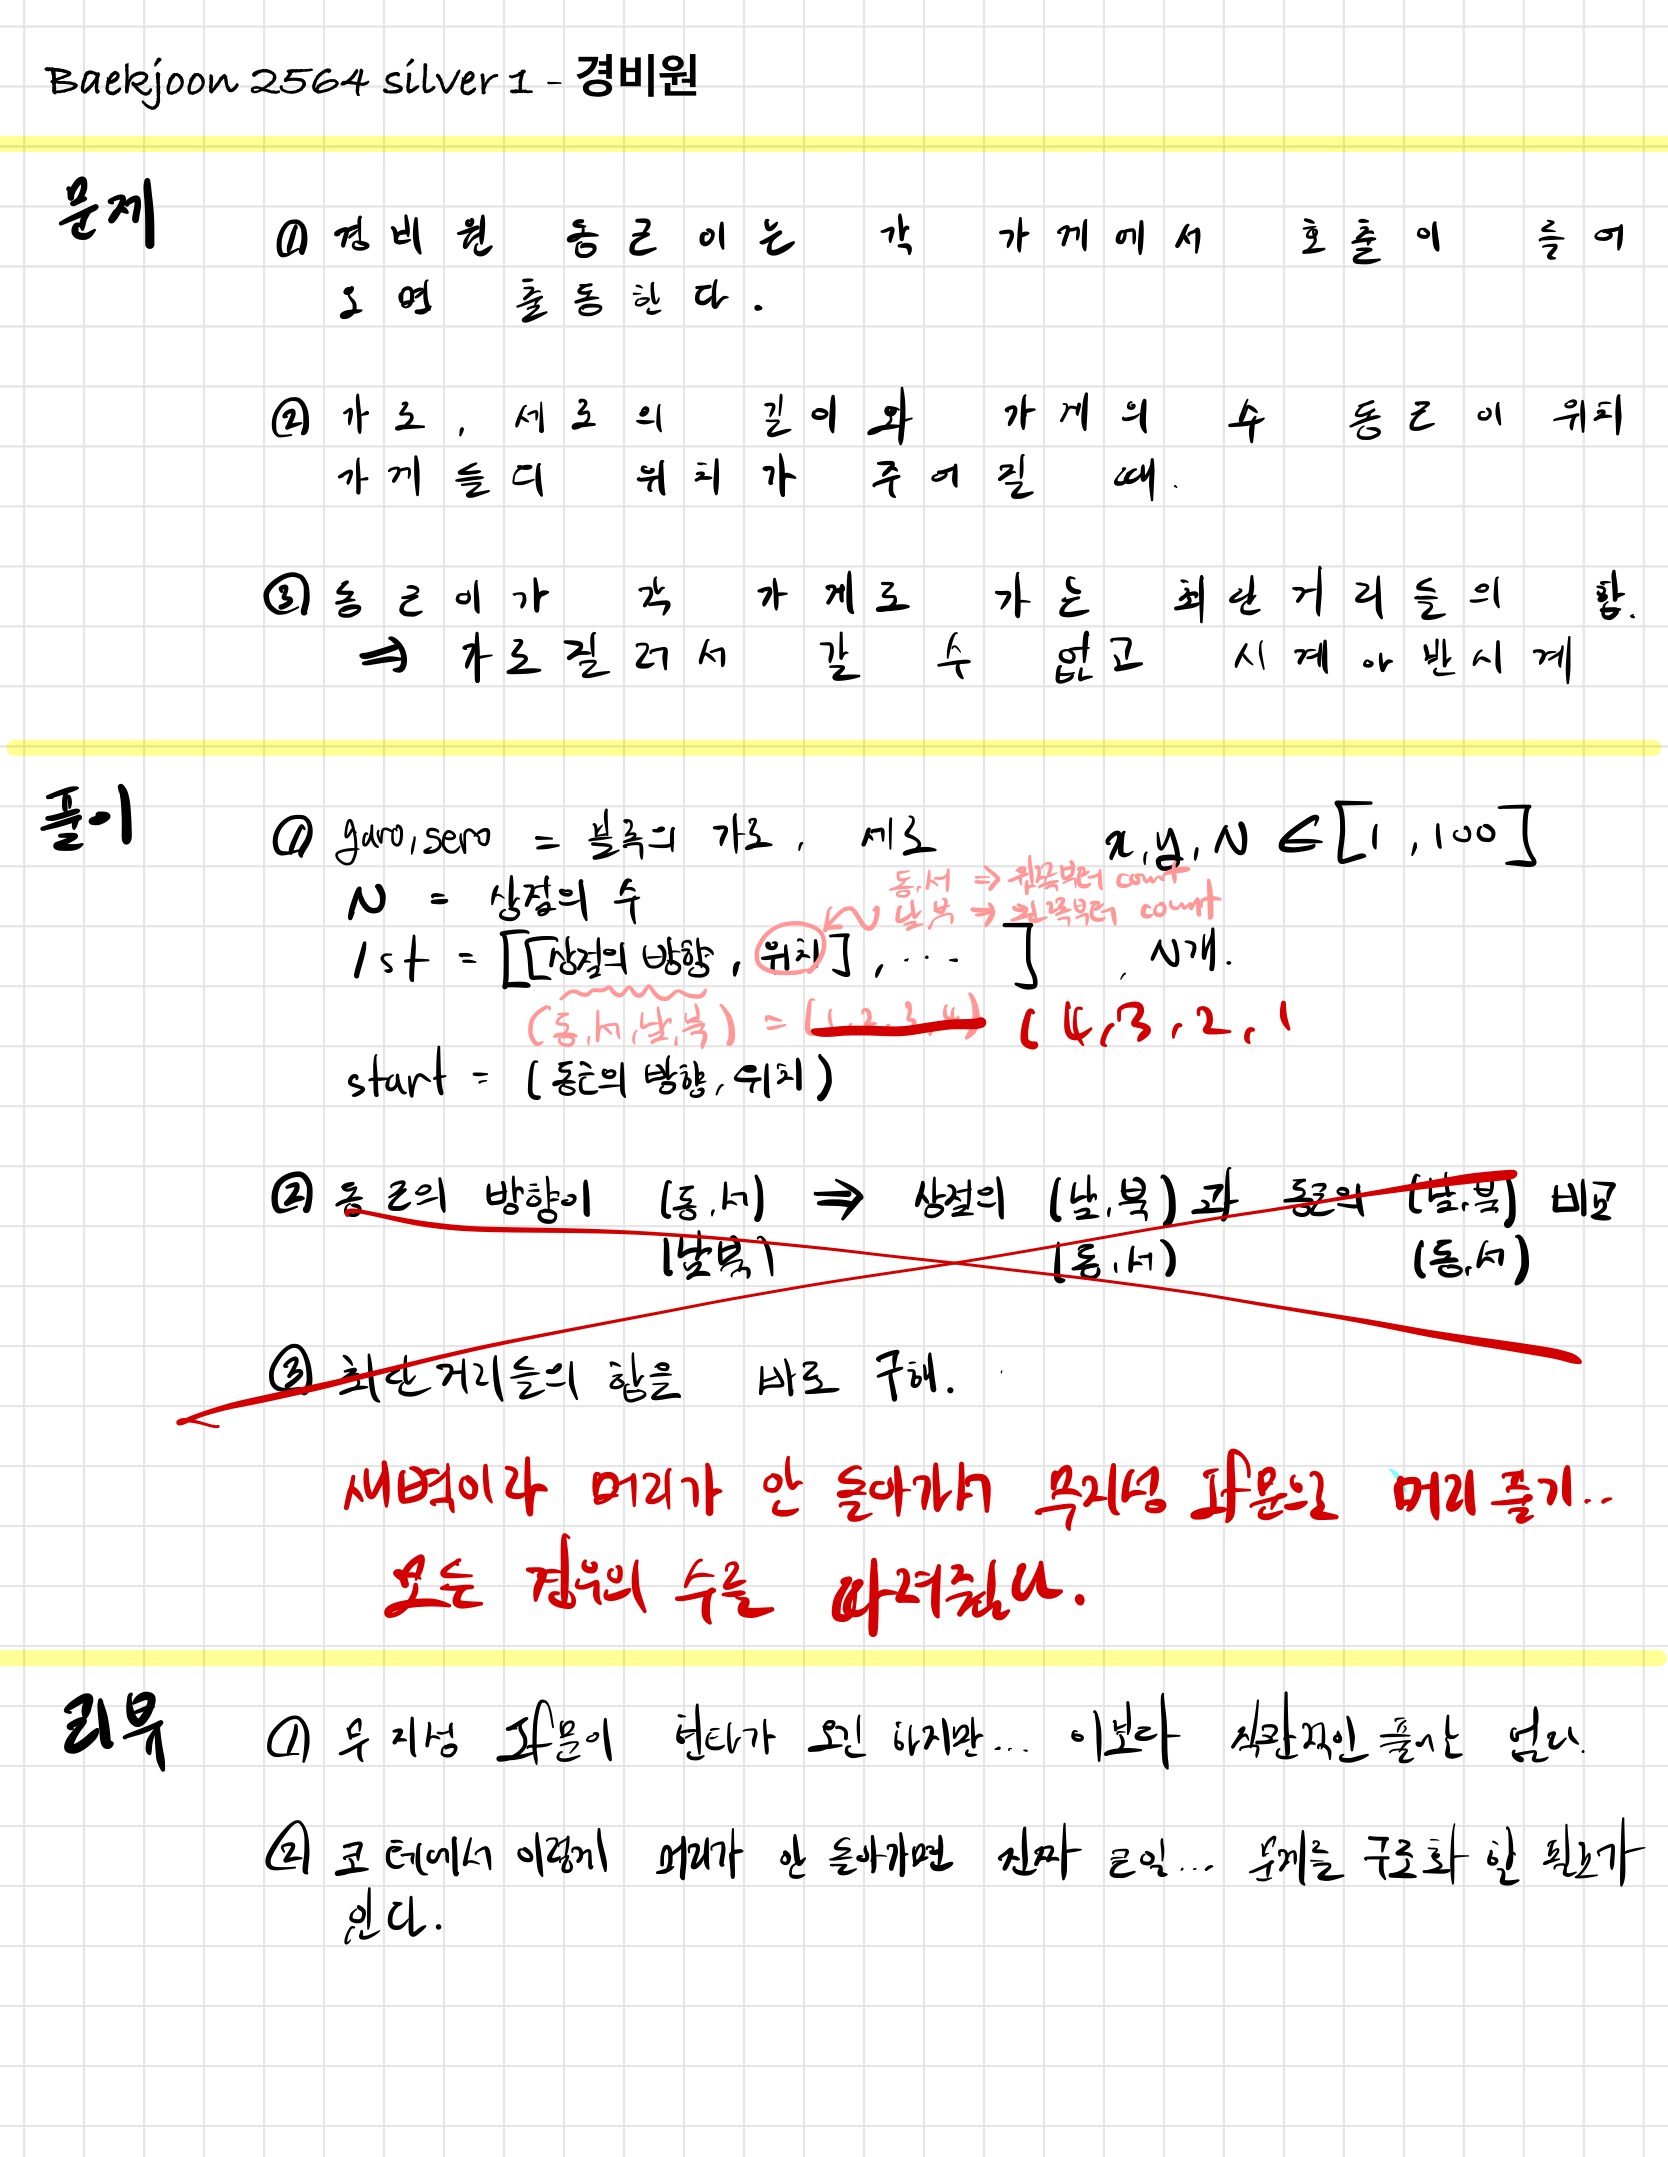 Baekjoon 2564 silver 1 - 경비원
문제
① 경비원 동근이는 각 가게에서 호출이 들어
오면 출동한다.
② 가로, 세로의 길이와 가게의 수 동근이 위치
가게들디 위치가 주어질 때.
③ 동근이가 각 가게로 가는 최단거리들의 합.
⇒ 가로질러서 갈 수 없고 시계 or 반시계
풀이
① garo, sero = 블록의 가로, 세로 x, y, N ∈ [1, 100]
동,서 ⇒ 위쪽부터 count
N = 상점의 수
남,북 → 왼쪽부터 count
lst = [[상점의 방향, 위치], ... ] , N개.
(동,서,남,북) = (1,2,3,4) (4,3,2,1
start = (동근의 방향, 위치)
② 동근의 방향이 (동,서) ⇒ 상점의 (남,북)과 동근의 (남,북) 비교
(남북) (동,서) (동,서)
③ 최단거리들의 합을 바로 구해.
새벽이라 머리가 안 돌아가서 무지성 if문으로 머리 줄기..
모든 경우의 수를 따져줬다.
리뷰
① 무지성 if문이 현타가 오긴 하지만... 이보다 직관적인 풀이는 없다.
② 코테에서 이렇게 머리가 안 돌아가면 진짜 큰일... 문제를 구조화 할 필요가
있다.